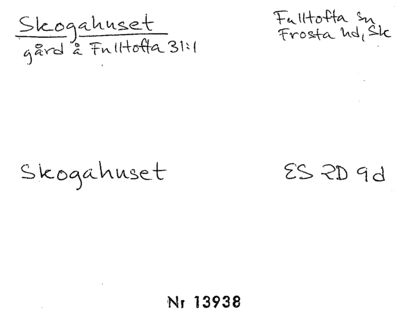 Skogahuset
gård å Fulltofta 31:1
Fulltofta sn
Frosta hd, Sk
Skogahuset
ES 2D 9d
Nr 13938